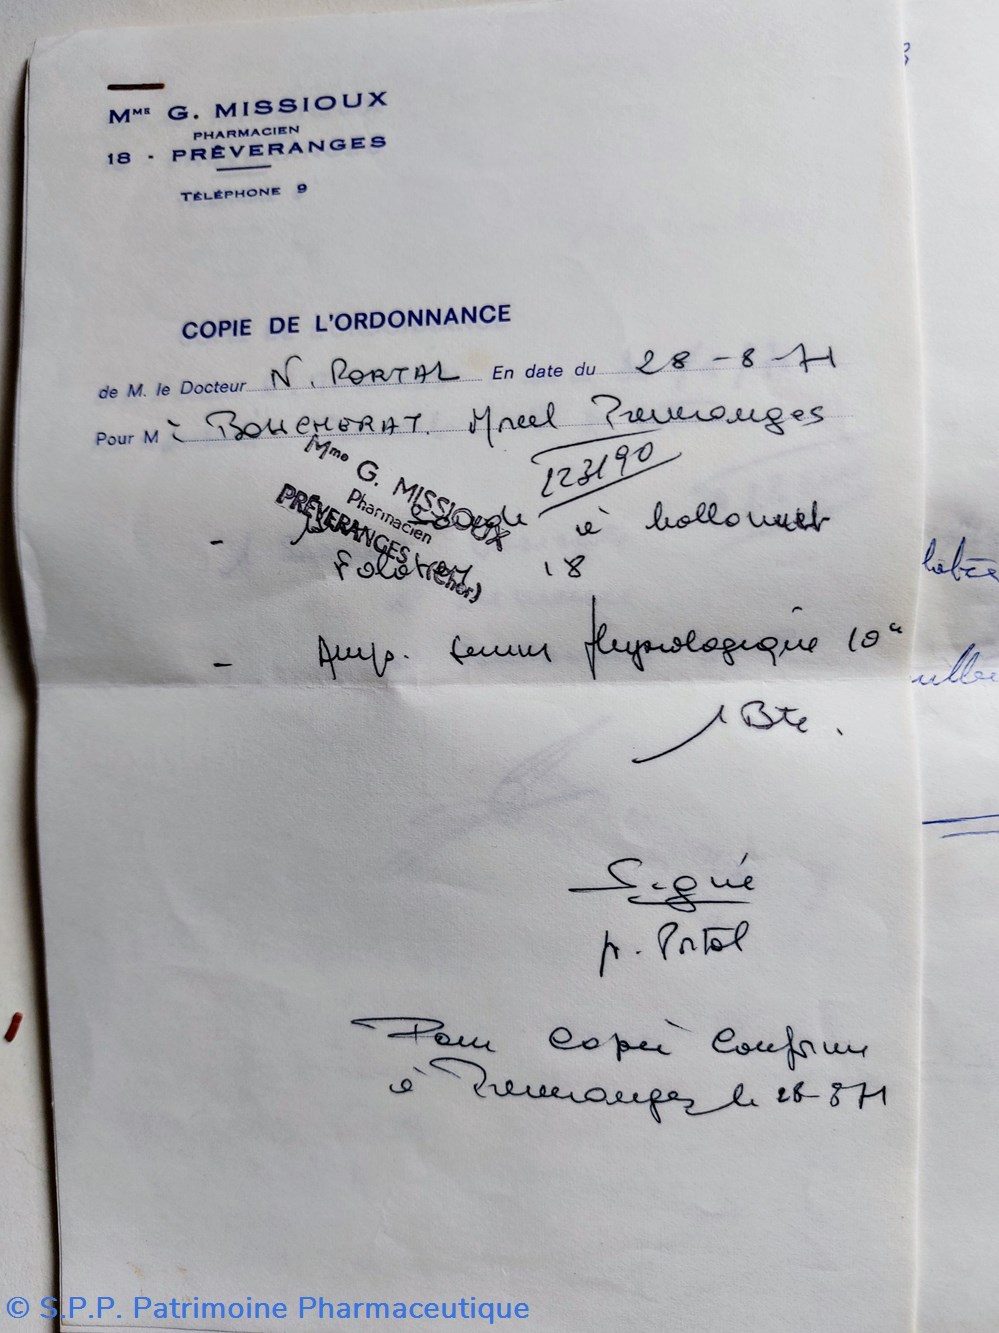 Mme G. MISSIOUX
PHARMACIEN
18 - PRÉVERANGES
TÉLÉPHONE 9
COPIE DE L'ORDONNANCE
de M. le Docteur N. PORTAL En date du 28-8-71
Pour M BOUCHERAT. Preveranges
123190
Mme G. MISSIOUX
Pharmacien
PRÉVERANGES (Cher)
- Sonde à ballonnet
18
- Amp. serum physiologique 10
1 Bte.
Signé
Portal
Pour copie conforme
à Preveranges le 28-8 71
© S.P.P. Patrimoine Pharmaceutique